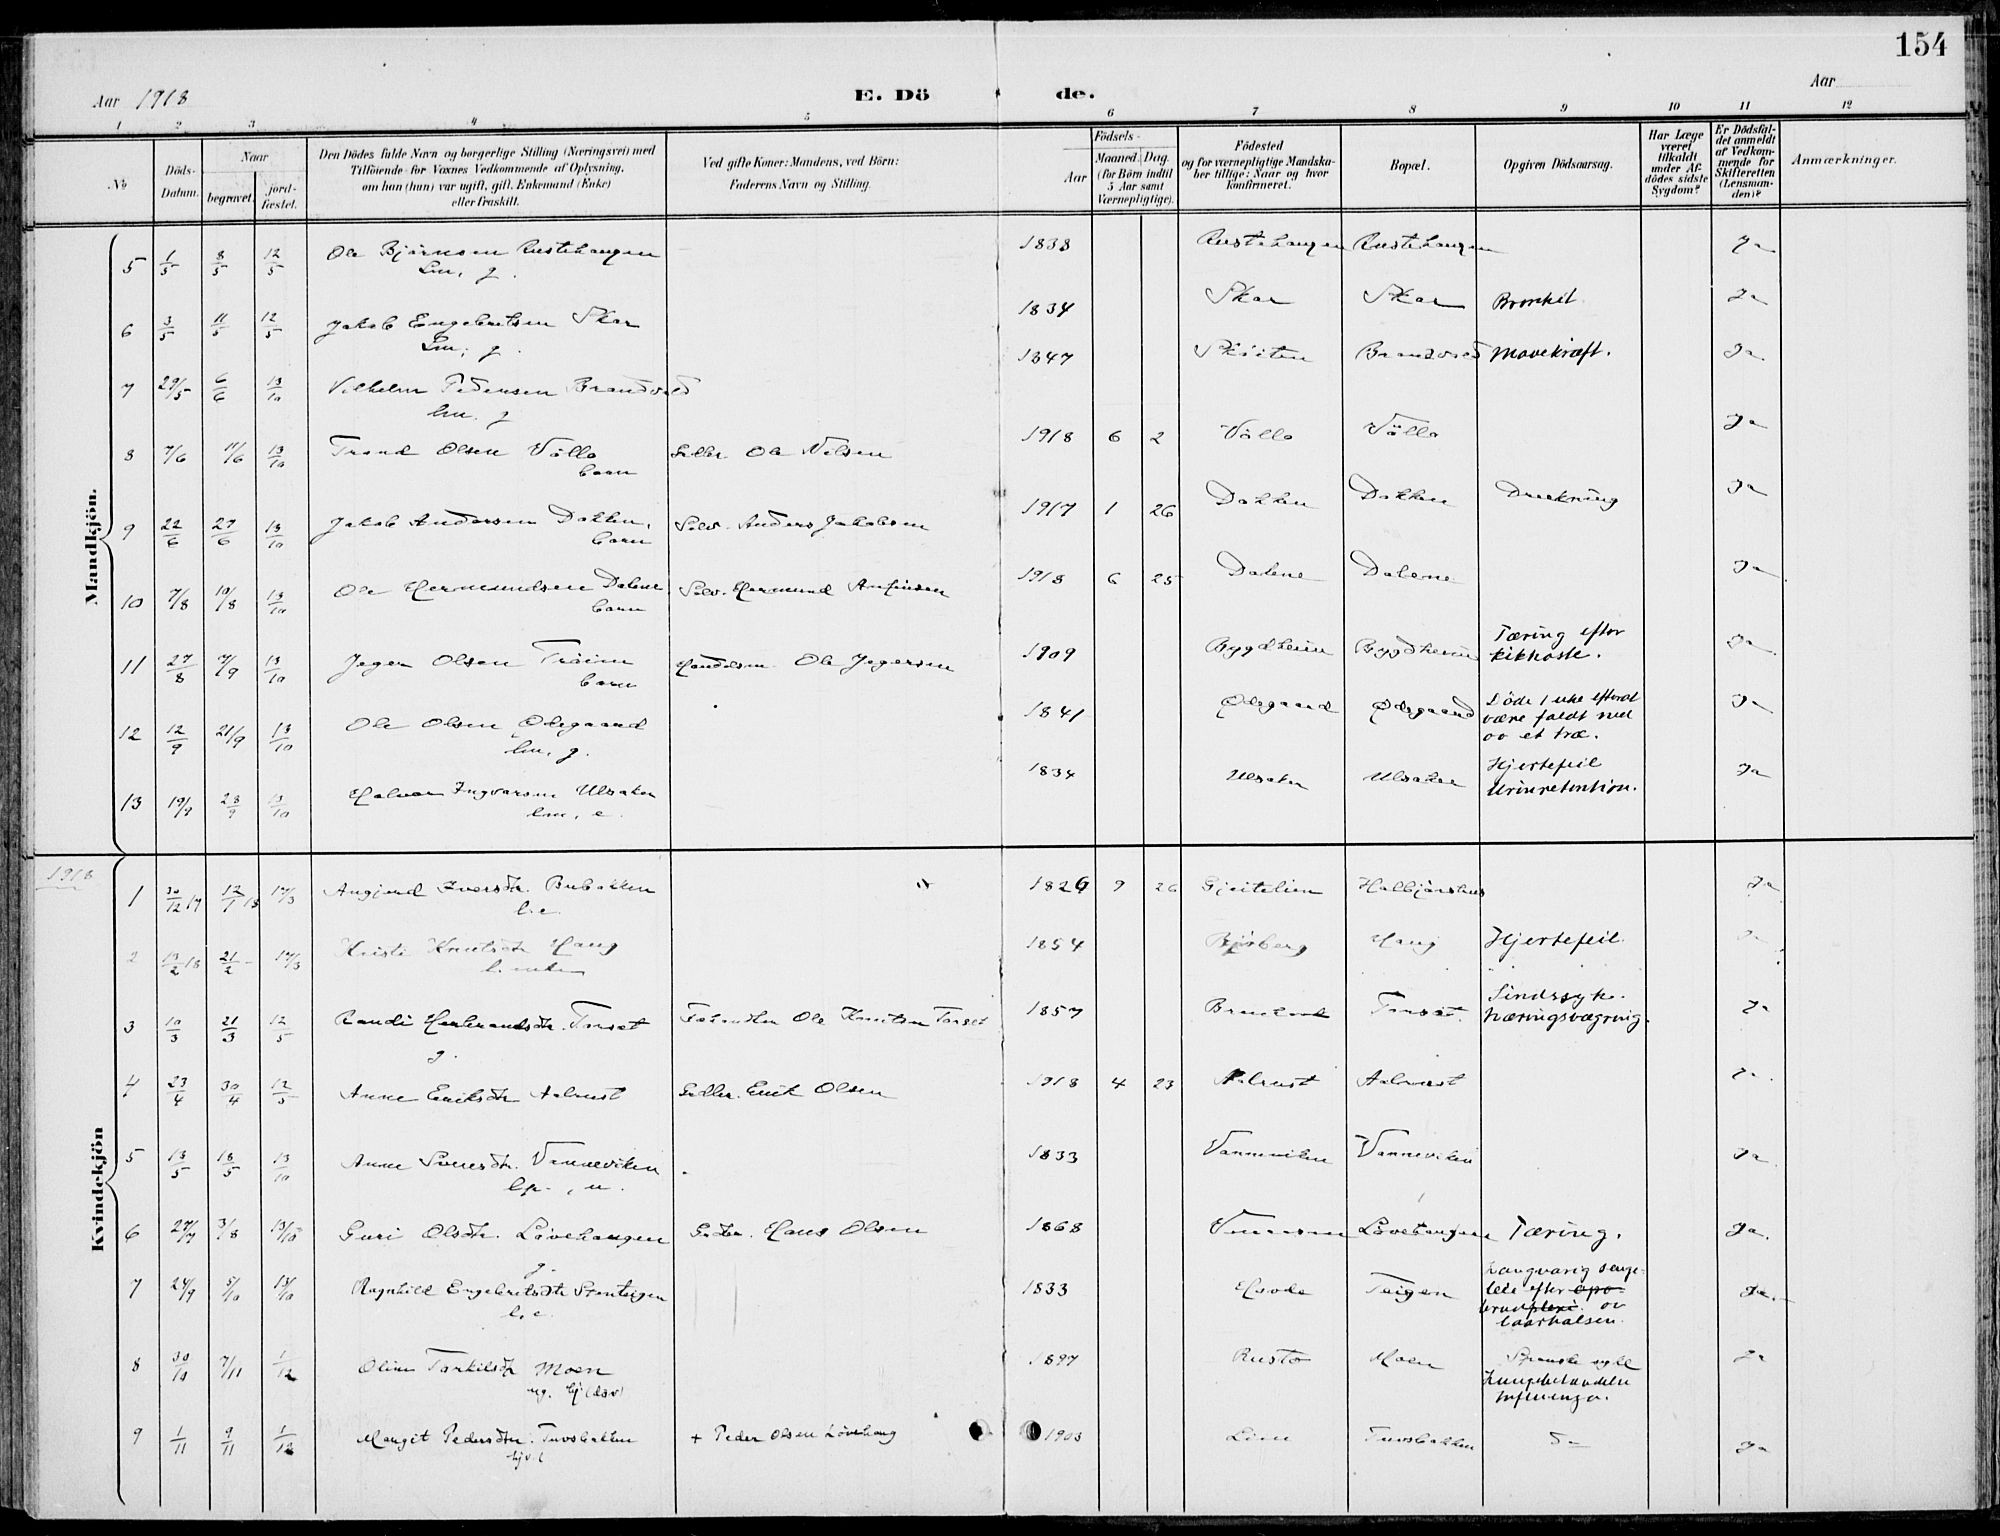 154
Aar 1918
E. Dö de.
Aar
1 2 3 4 5 6 7 8 9 10 11 12
No
Döds-Datum.
Naar
begravet.
jord-fæstet.
Den Dödes fulde Navn og borgerlige Stilling (Næringsvei) med
Tilföiende for Voxnes Vedkommende af Oplysning,
om han (hun) var ugift, gift, Enkemand (Enke)
eller fraskilt.
Ved gifte Koner: Mandens, ved Börn:
Faderens Navn og Stilling.
Födsels-
Aar
Maaned. Dag.
(for Börn indtil
5 Aar samt
Værnepligtige).
Födested
og for værnepligtige Mandska-
ber tillige: Naar og hvor
konfirmeret.
Bopæl.
Opgiven Dödsaarsag.
Har Læge
været
tilkaldt
under Af-
dödes sidste
Sygdom?
Er Dödsfal-
det anmeldt
af Vedkom-
mende for
Skifteretten
(Lensman-
den)?
Anmærkninger.
Mandkjön.
5 1/5 8/5 12/5 Ole Björnsen Rustehaugen 1838 Rustehaugen Rustehaugen Ja
Lm, g.
6 3/5 11/5 12/5 Jakob Engebretsen Skar 1834 Skar Skar Bronkit. Ja
Lm, g.
7 29/5 6/6 13/10 Vilhelm Pedersen Brandvold 1847 Brandvold Mavekræft. Ja
Lm. g
8 7/6 11/6 13/10 Trond Olsen Völlo Sedler. Ole Nilsen 1918 6 2 Völlo Völlo Ja
barn
9 22/6 27/6 13/10 Jakob Andersen Dokken, Selv. Anders Jakobsen 1917 1 26 Dokken Dokken Drukning Ja
barn
10 7/8 10/8 13/10 Ole Hermundsen Dalene Selv. Hermund Anfinsen 1918 6 25 Dalene Dalene Ja
barn
11 27/8 7/9 13/10 Jeger Olsen Tröim Handelsm. Ole Jegersen 1909 Bygdheim Bygdheim Tæring efter kikhoste. Ja
barn
12 12/9 21/9 13/10 Ole Olsen Ødegaard 1841 Ødegaard Ødegaard Döde 1 uke efterat være faldt ned av et træ. Ja
Lm. g.
13 19/9 28/9 13/10 Halvor Ingvarsen Ulsaker 1834 Ulsaker Ulsaker Hjertefeil Urinretention. Ja
Lm, e.
1918
Kvindekjön
1 30/12 17 12/1 18 17/3 Angjerd Iversdtr. Bubakken 1826 9 26 Gjeitelien Halbjörshus Ja
l. e.
2 13/2 18 21/2 - 17/3 Kristi Knutsdtr Haug 1854 Björberg Haug Hjertefeil. Ja
l. enke
3 10/3 21/3 12/5 Randi Herbrandsdtr. Torset Ole Knutsen Torset 1857 Torset. Sindssyk. Næringsvægring. Ja
g.
4 23/4 30/4 12/5 Anne Eriksdtr Aalrust Sedler. Erik Olsen 1918 4 23 Aalrust Aalrust Ja
5 13/5 18/5 13/10 Anne Sveresdtr. Vanneviken 1833 Vanneviken Vanneviken Ja
6 27/7 3/8 13/10 Guri Olsdtr. Lövehaugen Hans Olsen 1868 Lövehaugen Tæring. Ja.
g.
7 24/9 5/10 13/10 Ragnhild Engebretsdtr Stenteigen 1833 Teigen Langvarig senge-leie efter apo-plexi. brud av laarhalsen. Ja.
l. e.
8 30/10 7/11 1/12 Oline Torkilsdtr Moen 1897 Rusto Moen Spanske syke Influenza. Ja
ug.
9 1/11 9/11 1/12 Margit Pedersdtr. Tuvsbakken + Peder Olsen Lövehaug 1903 Tuvsbakken Ja